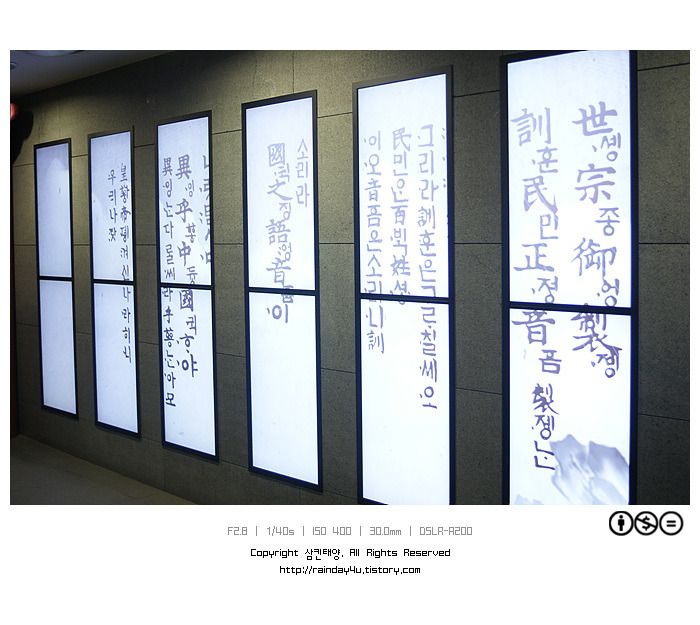 世솅宗종御엉製졩
訓훈民민正졍音흠製졩는
그리라訓훈은그르칠씨오
民민은百빅姓셩
이오音흠은소리니訓
소리라
國귁之징語엉音흠이
異잉乎홍中듕國귁ᄒᆞ야
異잉는다ᄅᆞᆯ씨라乎홍는아모
皇황帝뎽겨신나라히니
우리나랏
F2.8 | 1/40s | ISO 400 | 30.0mm | DSLR-A200
Copyright 삼킨태양. All Rights Reserved
http://rainday4u.tistory.com